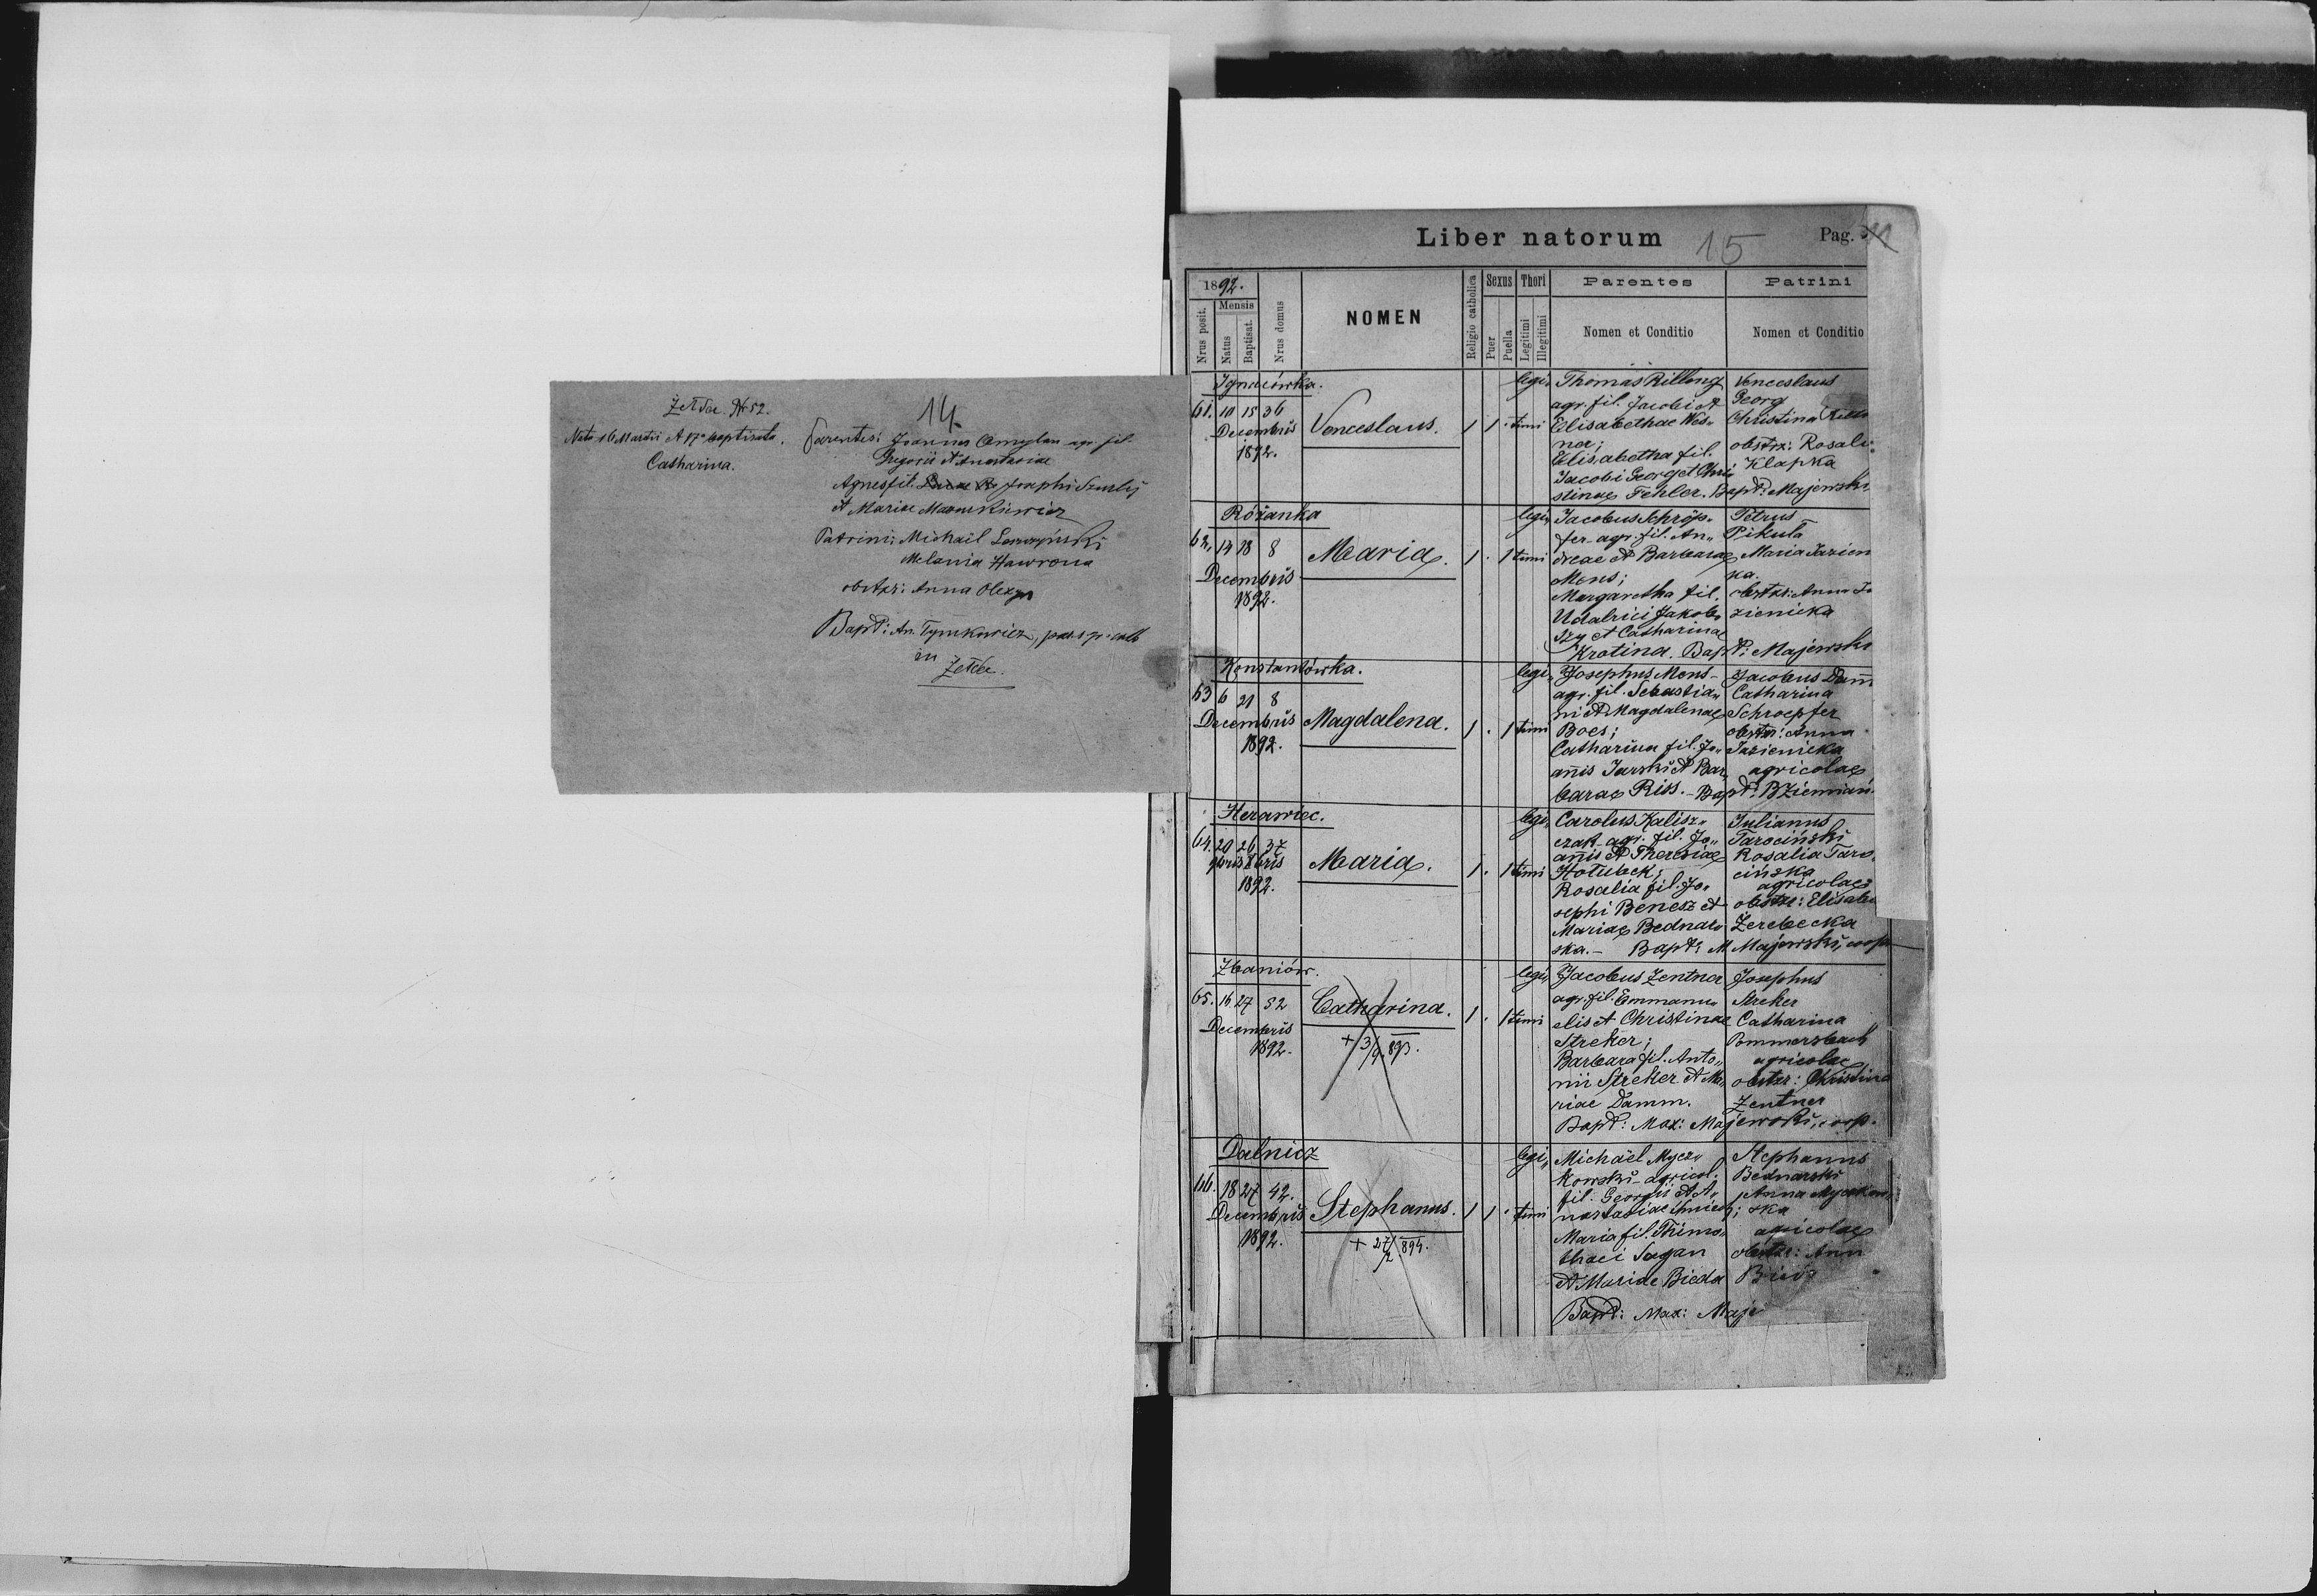 14
Żełdec Nr 52.
Nata 16 Martii et 17a baptisata.
Catharina.
Parentes: Joannes agr. fil.
Gregorii et Anastasiae
Agnes fil. Josephi
et Mariae
Patrini: Michail
Melania Hawrona
obstr: Anna
Bapt: An. Tymkiewicz,
in
Liber natorum 15 Pag.
1892.
Nrus posit.
Mensis
Natus
Baptisat.
Nrus domus
NOMEN
Religio catholica
Sexus
Puer
Puella
Thori
Legitimi
Illegitimi
Parentes
Nomen et Conditio
Patrini
Nomen et Conditio
Ignacówka.
61. 10 15 36
Decembris
1892.
Venceslaus.
1 1 . legi„timi
Thomas Killong
agr. fil. Jacobi et
Elisabethae Wes„
ner;
Elisabetha fil.
Jacobi Georg et Chri
stinae Fehler. Bapt: Majewski
Venceslaus
Georg
Christina
obstr: Rosali
Klapka
Różanka
62. 14 18 8
Decembris
1892.
Maria.
1 . 1 legi„timi
Jacobus Schröp„
fer agr. fil. An„
dreae et Barbarae
Mens;
Margaretha fil.
Udalrici Jakob
szy et Catharinae
Krotina. Bapt: Majewski
Petrus
Pikuła
Maria Jazien
ka.
obstr: Anna Ja
zienicka
Konstantówka.
63 6 21 8
Decembris
1892.
Magdalena.
1 . 1 legi„timi
Josephus Mens -
agr. fil. Sebastia„
ni et Magdalenae
Boes;
Catharina fil. Jo„
annis Jarski et Bar„
barae Riss. - Bapt:
Jacobus Damm
Catharina
Schroepfer
obstr: Anna
Jazienicka
agricolae
Herawiec.
64. 20 26 37
9bris Xbris
1892.
Maria.
1 . 1 legi„timi
Carolus Kalisz„
czak agr. fil. Jo„
annis et Theresiae
Hołubek;
Rosalia fil. Jo„
sephi Benesz et
Mariae Bednar„
ska. - Bapt: M. Majewski, coop.
Julianus
Tarociński
Rosalia Taro
cińska
agricolae
obstr: Elisabe
Żerebecka
Zbaniów.
65. 16 27 32
Decembris
1892.
Catharina.
+ 3/9 893.
1 . 1 legi„timi
Jacobus Zentner
agr. fil. Emmanu„
elis et Christinae
Streker;
Barbara fil. Anto„
nii Streker et Ma„
riae Damm.
Bapt: Max: Majewski, coop.
Josephus
Streker
Catharina
Pommersbach
agricolae
obstr: Christina
Zentner
Dalnicz
66. 18 27 42.
Decembris
1892.
Stephanus.
+ 27/2 894.
1 1 . legi„timi
Michaël Mycz„
kowski - agricol.
fil. Georgii et A„
nastasiae
Maria fil. Thimo„
thaei Sagan
et Mariae Bieda
Bapt: Max: Maje
Stephanus
Bednarski
Anna Myczkow
ska
agricolae
obstr: Ann